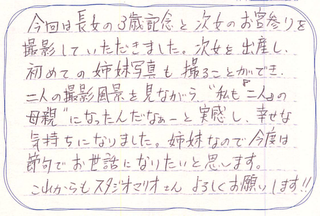 今回は長女の3歳記念と次女のお宮参りを
撮影していただきました。次女を出産し、
初めての姉妹写真も撮ることができ、
二人の撮影風景を見ながら、"私も『二人』の
母親"になったんだなぁーと実感し、幸せな
気持ちになりました。姉妹なので今度は
節句でお世話になりたいと思します。
これからもスタジオマリオさん よろしくお願いします!!